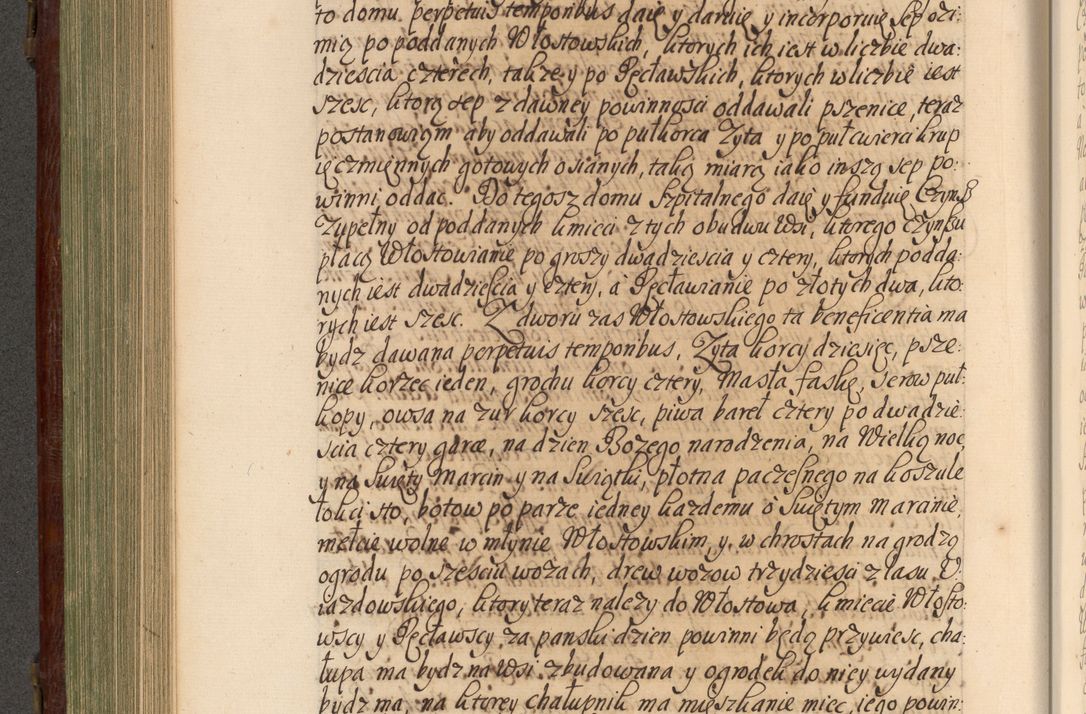 to domu perpetuis temporibus daię y daruię y incorporuię sep ozi:
mią po poddanych Włostowskich, ktorych ich iest w liczbie dwa:
dziescia czterech, także y po Pęcławskich, ktorych w liczbie iest
szesc, ktorą sep z dawney powinnosci oddawali pszenice, teraz
postanowiąm aby oddawali po pułkorca Zyta y po puł cwierci krup
ięczmięnnych gotowych osianych, taką miarą iako inszą sep po:
winni oddac. Do tegosz domu Szpitalnego daię y funduię Czynsz
Zupełny od poddanych kmieci z tych obudwu Wsi, ktorego Czynszu
płacą Włostowianie po groszy dwadziescia y cztery, ktorych podda:
nych iest dwadziescia y cztery, a Pęcławianie po złotych dwa, kto:
rych iest szesc. Z dworu zas Włostowskiego ta beneficentia ma
bydz dawana perpetuis temporibus, Zyta korcy dziesięc, psze:
nice korzec ieden, grochu korcy cztery, Masła faskę, serow puł:
kopy, owsa na zur korcy szesc, piwa bareł cztery po dwadzie:
scia cztery garce, na dzien Bożego narodzenia, na Wielką noc
y na Swięty Marcin y na Swiątki, płotna paczesnego na koszule
łokci sto, botow po parze iedney kazdemu o Swiętym Marcinie,
mełcie wolne w młynie Włostowskim, y w chrostach na grodzą
ogrodu po szesciu wozach, drew wozow trzydziesci z lasu U:
iazdowskiego, ktory teraz nalezy do Włostowa, kmiecie Włosto:
wscy y Pęcławscy za panski dzien powinni będą przywiesc, cha:
łupa ma bydz na Wsi zbudowana y ogrodek do niey wydany
bydz ma, na ktorey chałupnik ma mieszkanie miec, iego powin: